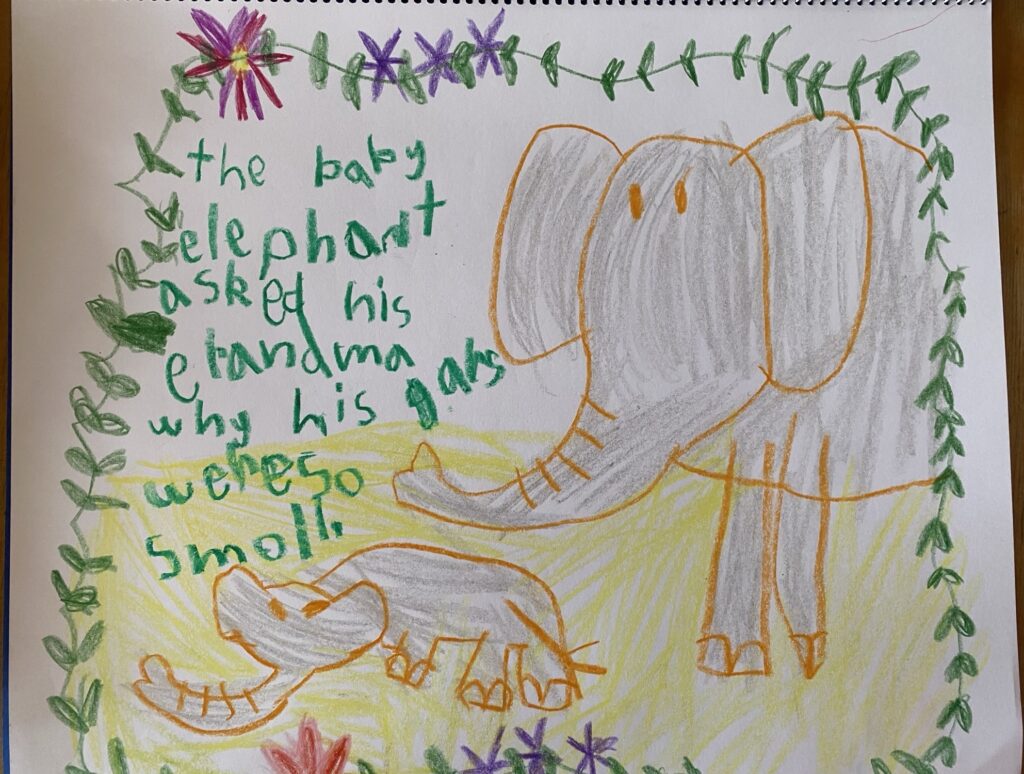 the baby
elephant
asked his
grandma
why his ears
were so
smoll